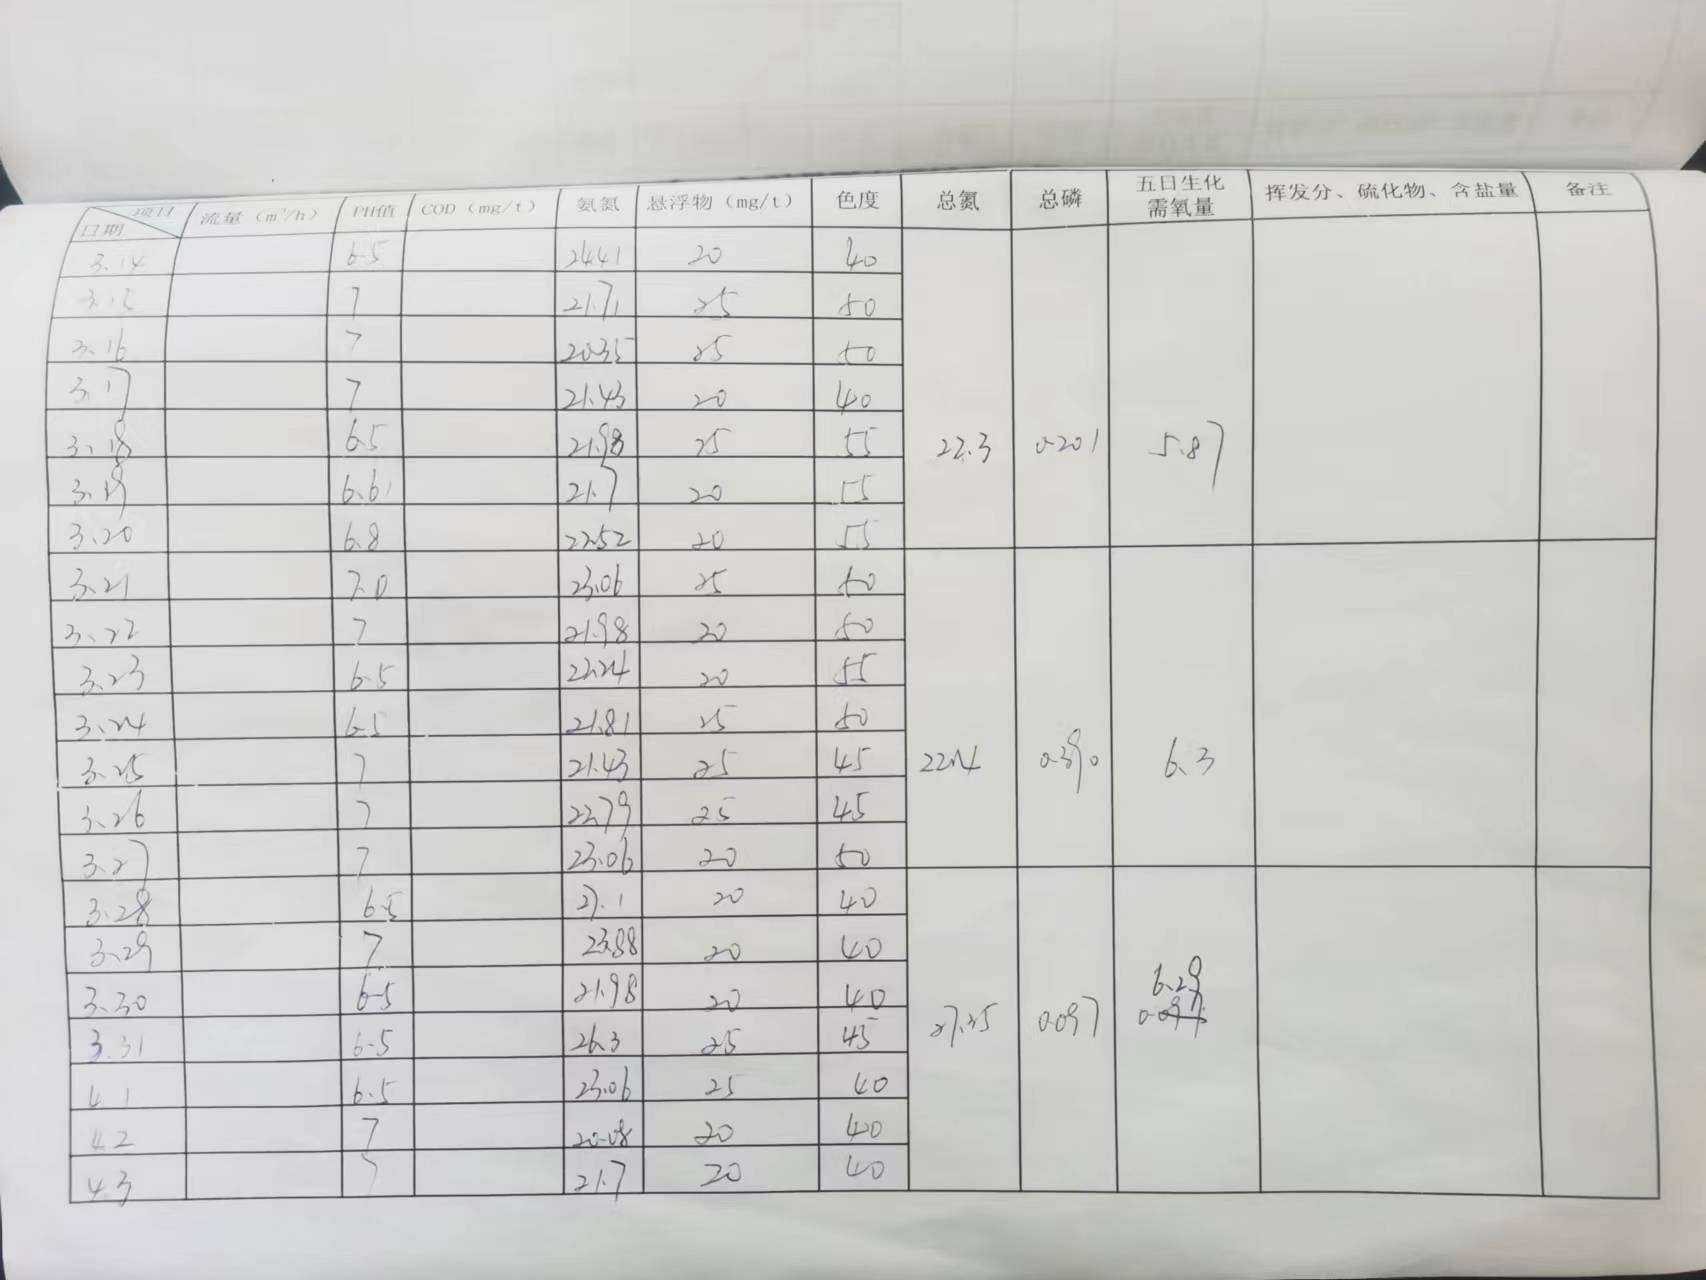 项目 日期 流量（m³/h） PH值 COD（mg/t） 氨氮 悬浮物（mg/t） 色度 总氮 总磷 五日生化需氧量 挥发分、硫化物、含盐量 备注
3.14 6.5 24.41 20 40
3.15 7 21.71 25 50
3.16 7 20.35 25 50
3.17 7 21.43 20 40
3.18 6.5 21.98 25 55 22.3 0.201 5.87
3.19 6.61 21.7 20 55
3.20 6.8 22.52 20 55
3.21 7.0 23.06 25 50
3.22 7 21.98 20 50
3.23 6.5 22.24 20 55
3.24 6.5 21.81 25 50
3.25 7 21.43 25 45 22.14 0.390 6.3
3.26 7 22.79 25 45
3.27 7 23.06 20 50
3.28 6.5 27.1 20 40
3.29 7 23.88 20 40
3.30 6.5 21.98 20 40 6.29
3.31 6.5 26.3 25 45 27.25 0.097
4.1 6.5 23.06 25 40
4.2 7 20.08 20 40
4.3 7 21.7 20 40